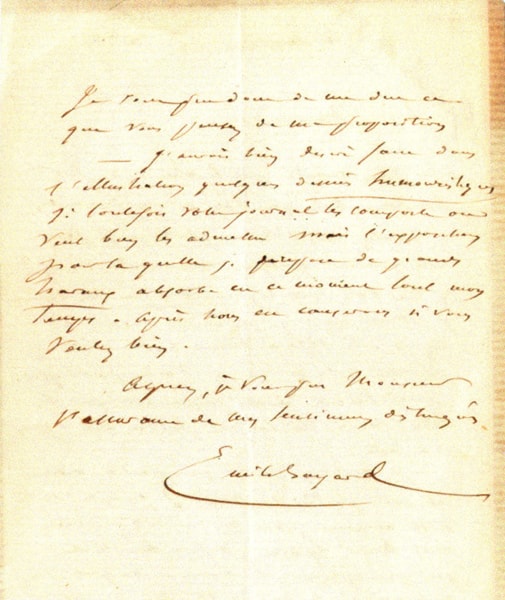 Je vous prie donc de me dire ce
que vous pensez de ma proposition
— J'aurais bien désiré faire dans
l'illustration quelques dessins humouristiques
si toutefois votre journal les comporte ou
veut bien les admettre mais l'exposition
pour laquelle je prépare de grands
travaux absorbe en ce moment tout mon
temps. après nous en causerons si vous
voulez bien.
Agréez, je vous prie Monsieur
l'assurance de mes sentiments distingués.
Emile Bayard